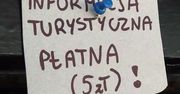 INFORMACJA
TURYSTYCZNA
PŁATNA
(5zł) !